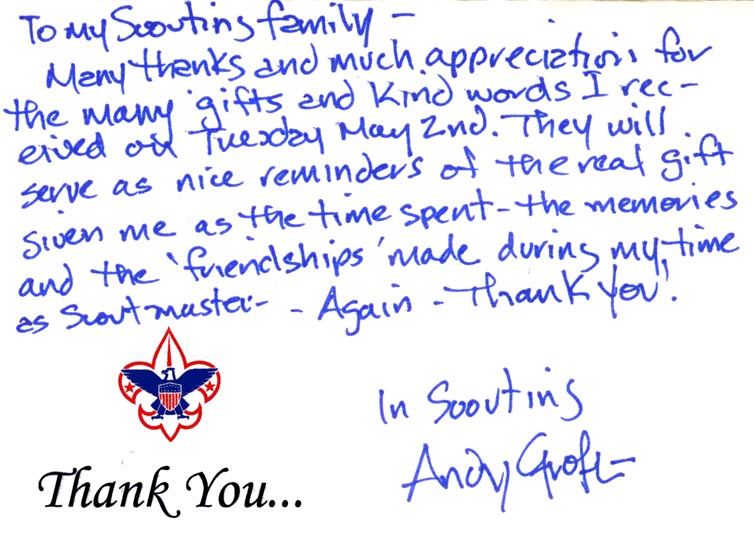 To my Scouting family –
Many thanks and much appreciation for
the many gifts and kind words I rec-
eived on Tuesday May 2nd. They will
serve as nice reminders of the real gift
given me as the time spent - the memories
and the 'friendships' made during my time
as Scoutmaster - - Again - Thank You!
In Scouting
Andy
Thank You...